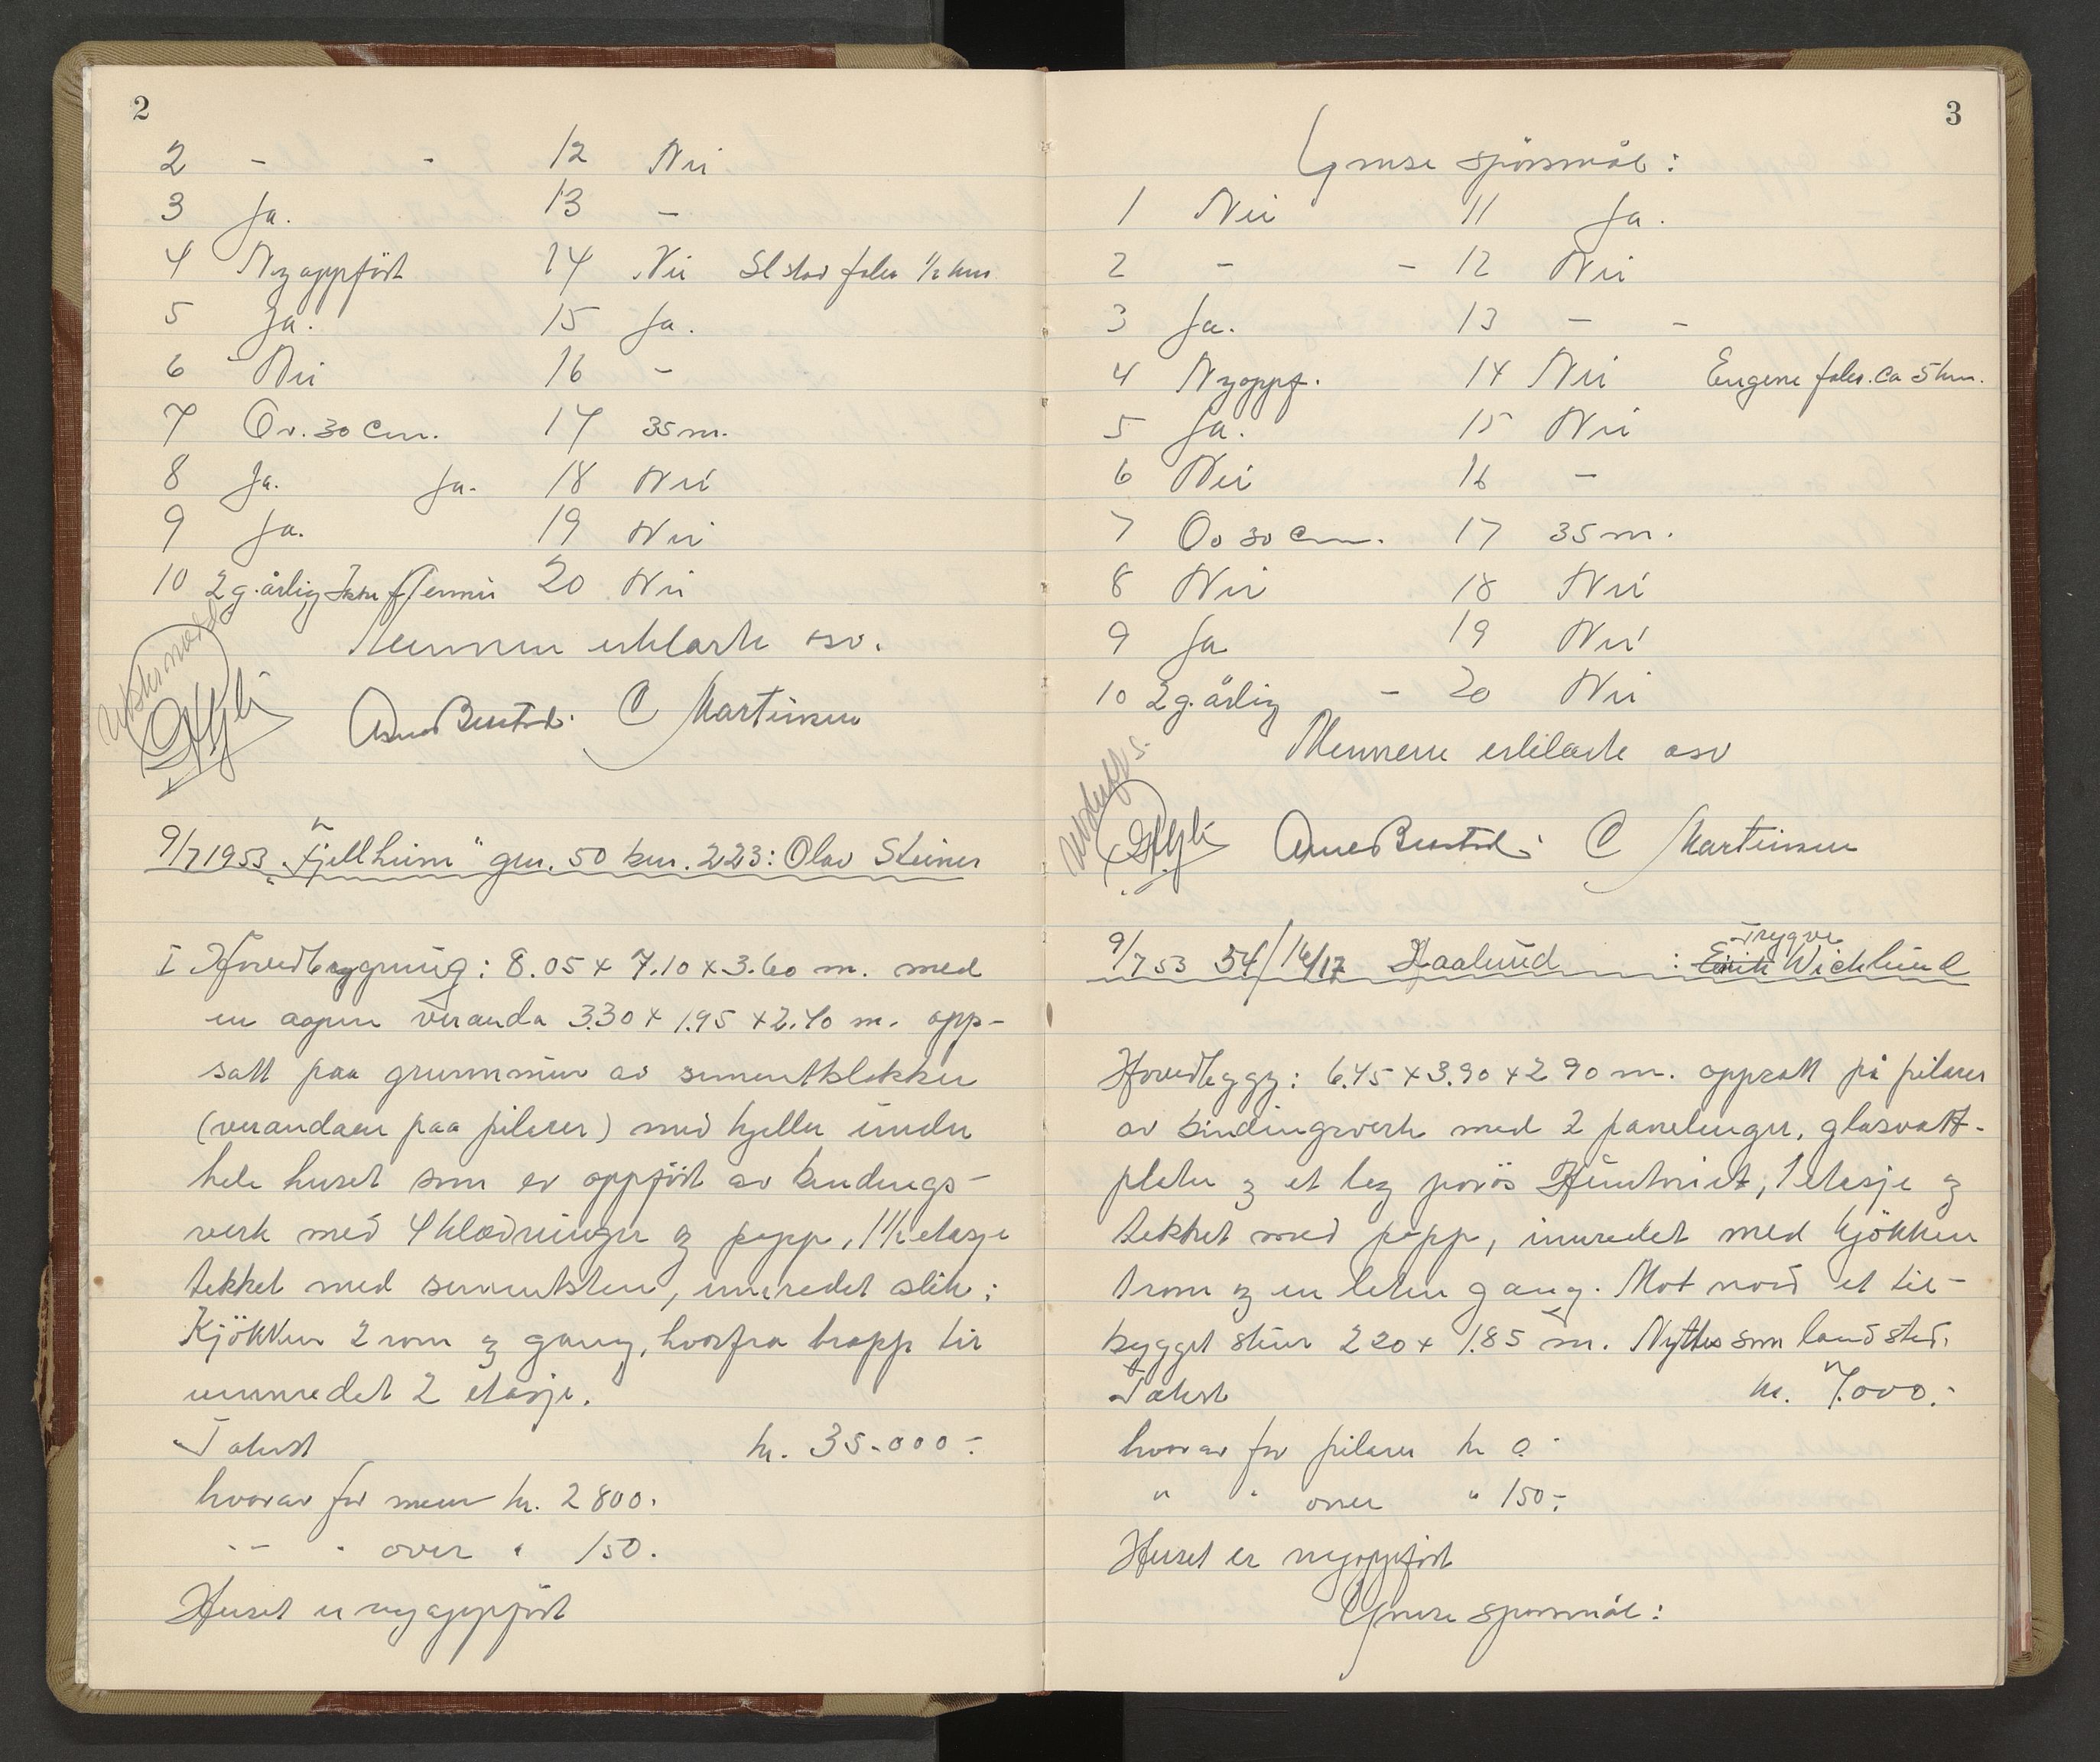 2
2 - - 12 Nei
3 Ja. 13 -
4 Nyoppført 14 Nei El stav foler 1/2 km
5 Ja. 15 Ja.
6 Nei 16 -
7 Ov. 30 cm. 17 35 m.
8 Ja. Ja. 18 Nei
9 Ja. 19 Nei
10 2 g. årlig 20 Nei
Mennene erklærte osv.
Utskr. nordd
Arne C Martinsen
9/7 1953 "Fjellheim" gnr. 50 bnr. 223: Olav Steiner
I Hovedbygning: 8.05 x 7.10 x 3.60 m. med
en aapen veranda 3.30 x 1.95 x 2.40 m. opp-
satt paa grunnmur av sementblokker
(verandaen paa pilarer) med kjeller under
hele huset som er oppført av bindings-
verk med 4 klædninger og papp, 1 1/2 etasje
tekket med sementsten, innredet slik:
Kjökken 2 rom og gang, hvorfra trapp til
uinnredet 2 etasje.
Takst kr. 35.000.-
hvorav for murer kr. 2800.
-"- " over " 150.
Huset er nyoppført
3
Ymse spörsmål:
1 Nei 11 Ja.
2 - - 12 Nei
3 Ja. 13 - -
4 Nyoppf. 14 Nei Eugene foler. ca 5 km.
5 Ja. 15 Nei
6 Nei 16 -
7 Ov 30 cm. 17 35 m.
8 Nei 18 Nei
9 Ja 19 Nei
10 2 g. årlig - 20 Nei
Mennene erklærte osv
Arne C Martinsen
Trygve
9/7 53 54/16/17 Haalund : Erik Wicklund
Hovedbygg: 6.45 x 3.90 x 2.90 m. oppsatt på pilarer
av bindingsverk med 2 panelinger, glasvatt-
plater og et lag porös Huntonit, 1 etasje og
tekket med papp, innredet med kjökken
1 rom og en liten gang. Mot nord et til-
bygget skur 2.20 x 1.85 m. Nyttes som landsted.
Takst kr. 7.000.-
hvorav for pilarer kr 0.-
" " over " 150.-
Huset er nyoppført
Ymse spörsmål: